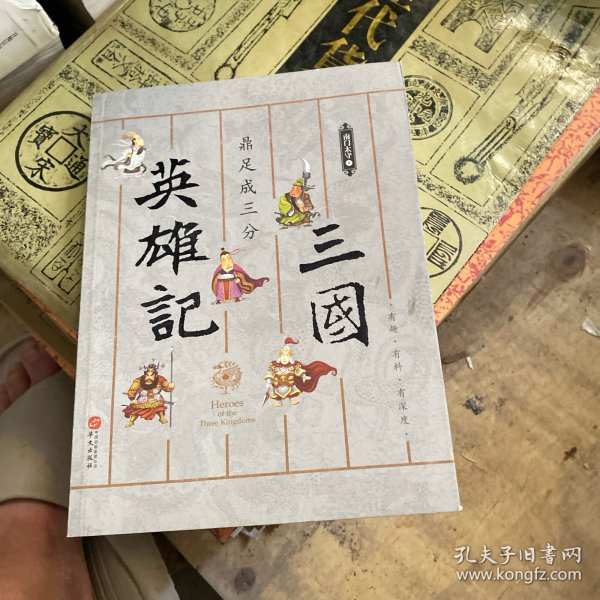 三國
英雄記
鼎足成三分
南门太守
·有趣·有料·有深度·
Heroes
of the
Three Kingdoms
华文出版社
代货
大宋通寳
孔夫子旧书网
www.kongfz.com